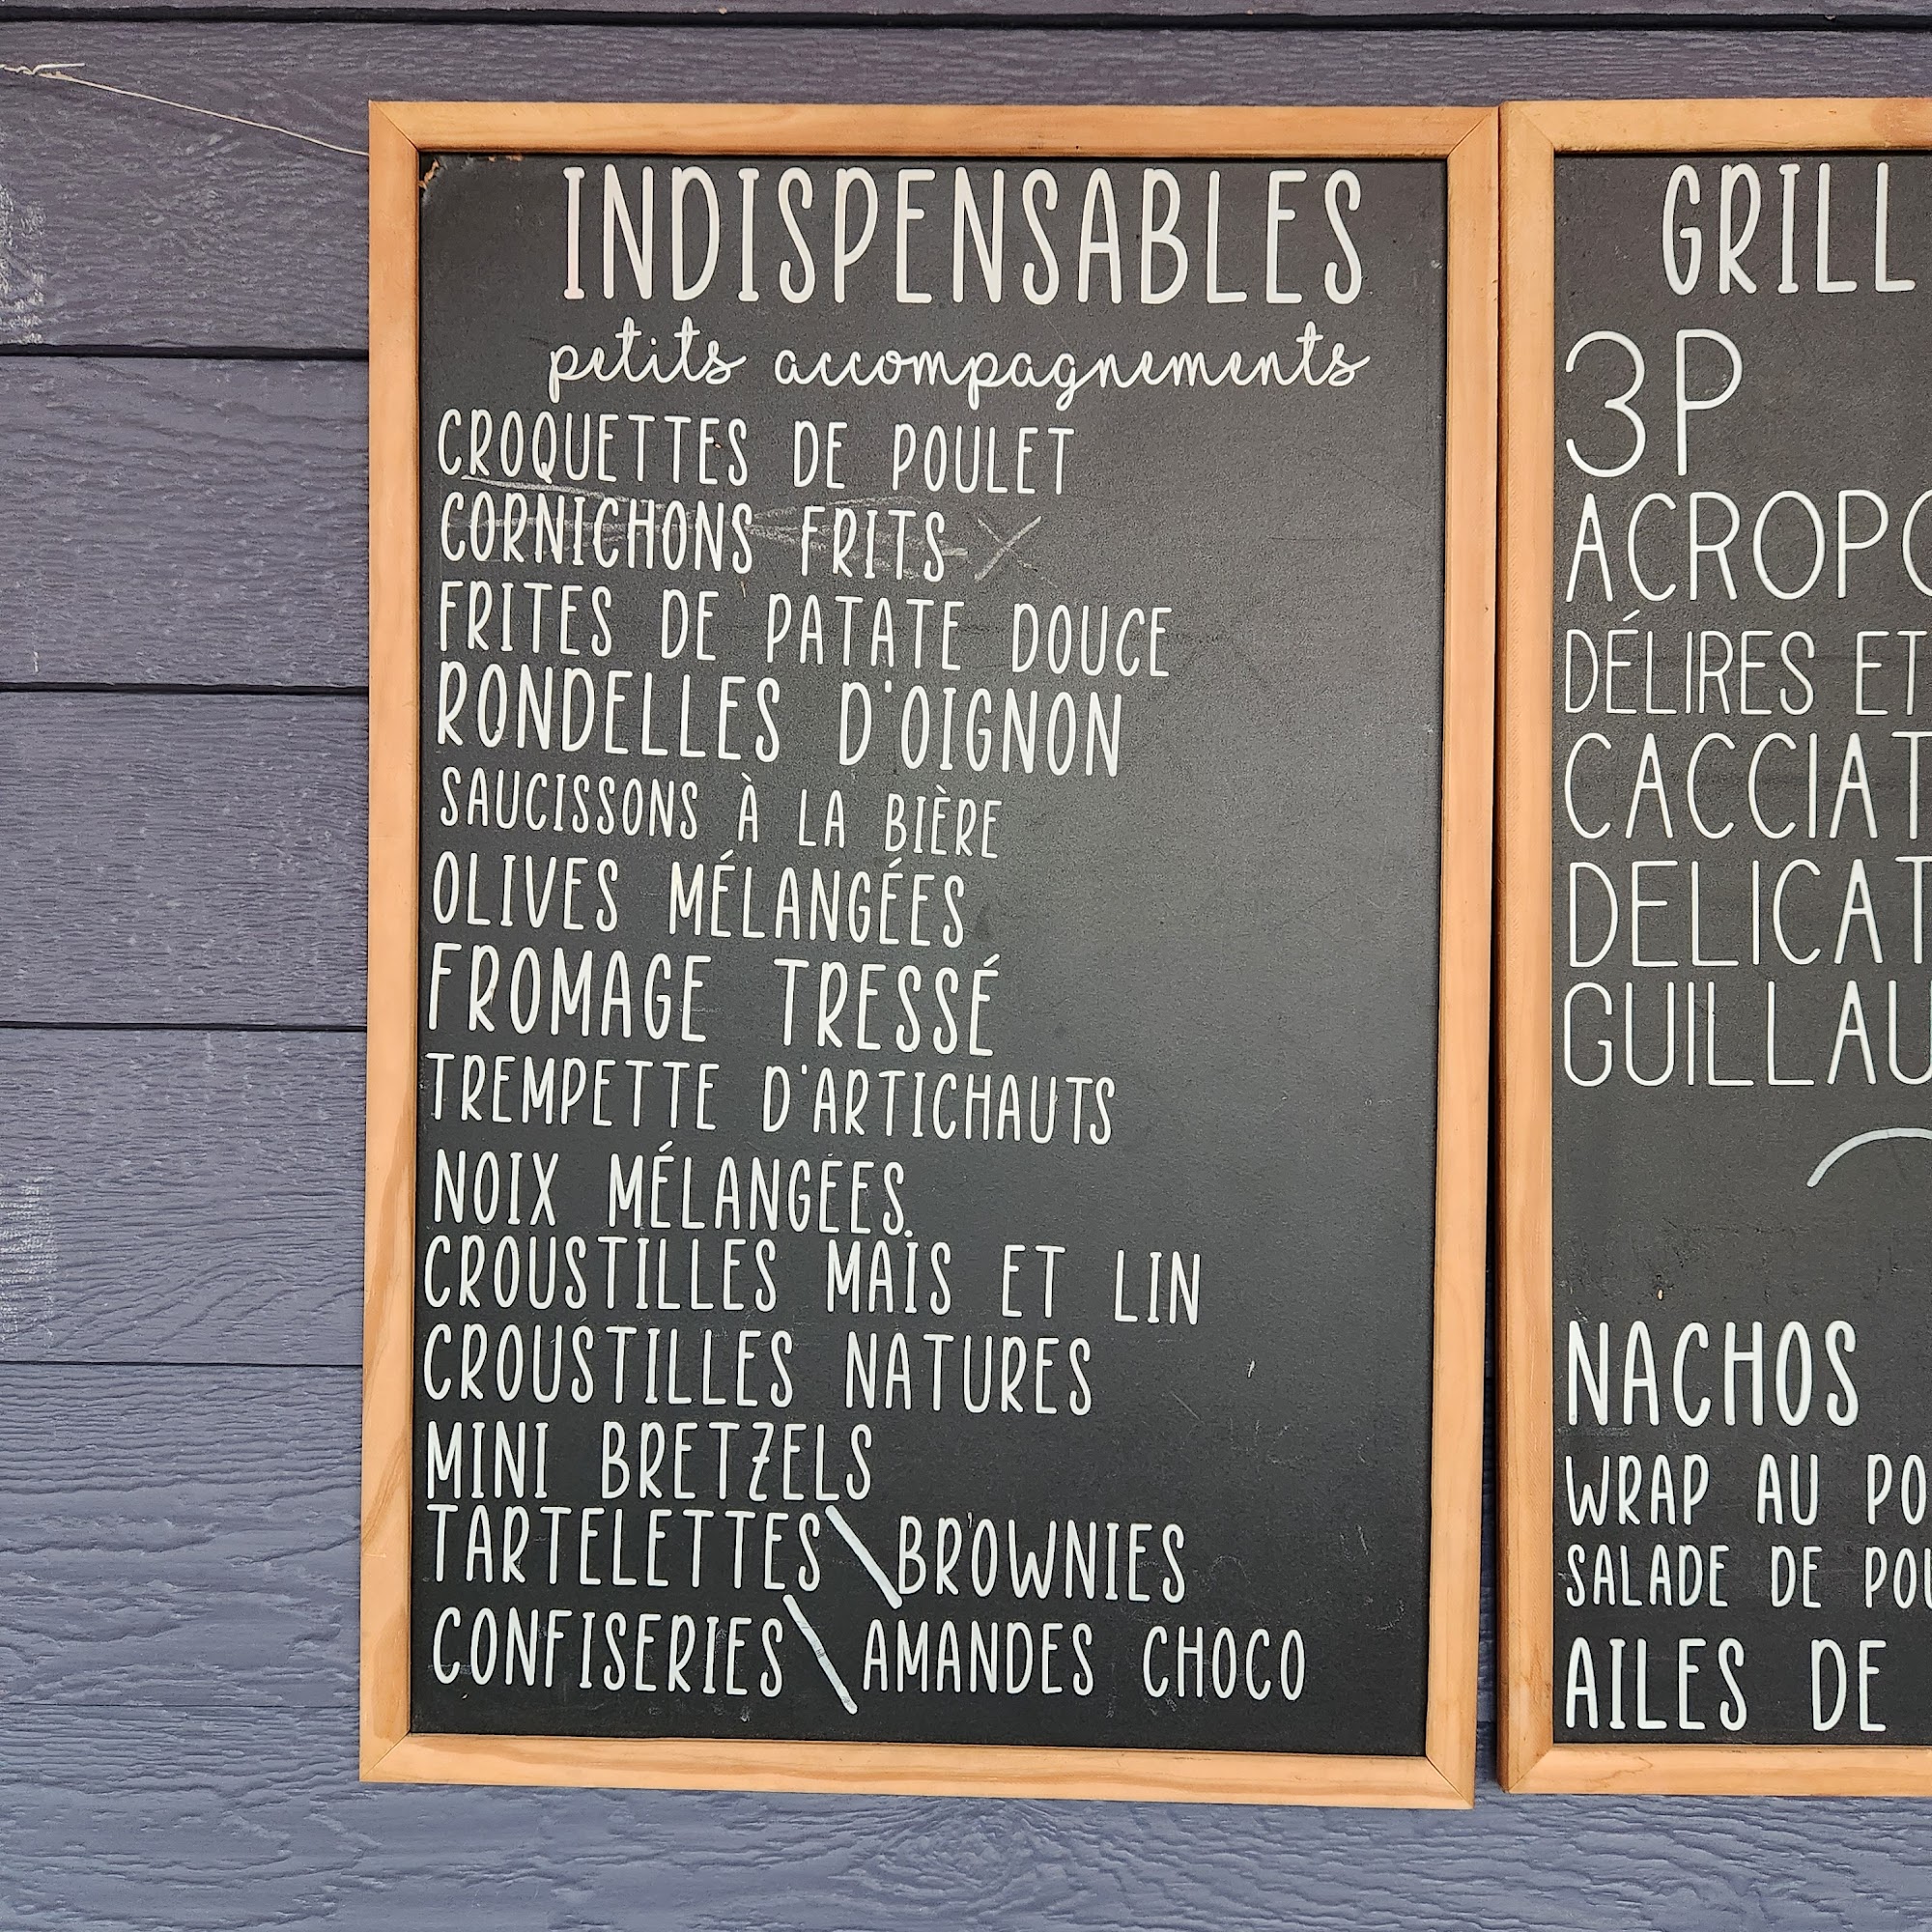 INDISPENSABLES
petits accompagnements
CROQUETTES DE POULET
CORNICHONS FRITS X
FRITES DE PATATE DOUCE
RONDELLES D'OIGNON
SAUCISSONS À LA BIÈRE
OLIVES MÉLANGÉES
FROMAGE TRESSÉ
TREMPETTE D'ARTICHAUTS
NOIX MÉLANGÉES
CROUSTILLES MAÏS ET LIN
CROUSTILLES NATURES
MINI BRETZELS
TARTELETTES \ BROWNIES
CONFISERIES \ AMANDES CHOCO
GRILL
3P
ACROPO
DÉLIRES ET
CACCIAT
DELICAT
GUILLAU
NACHOS
WRAP AU PO
SALADE DE POU
AILES DE